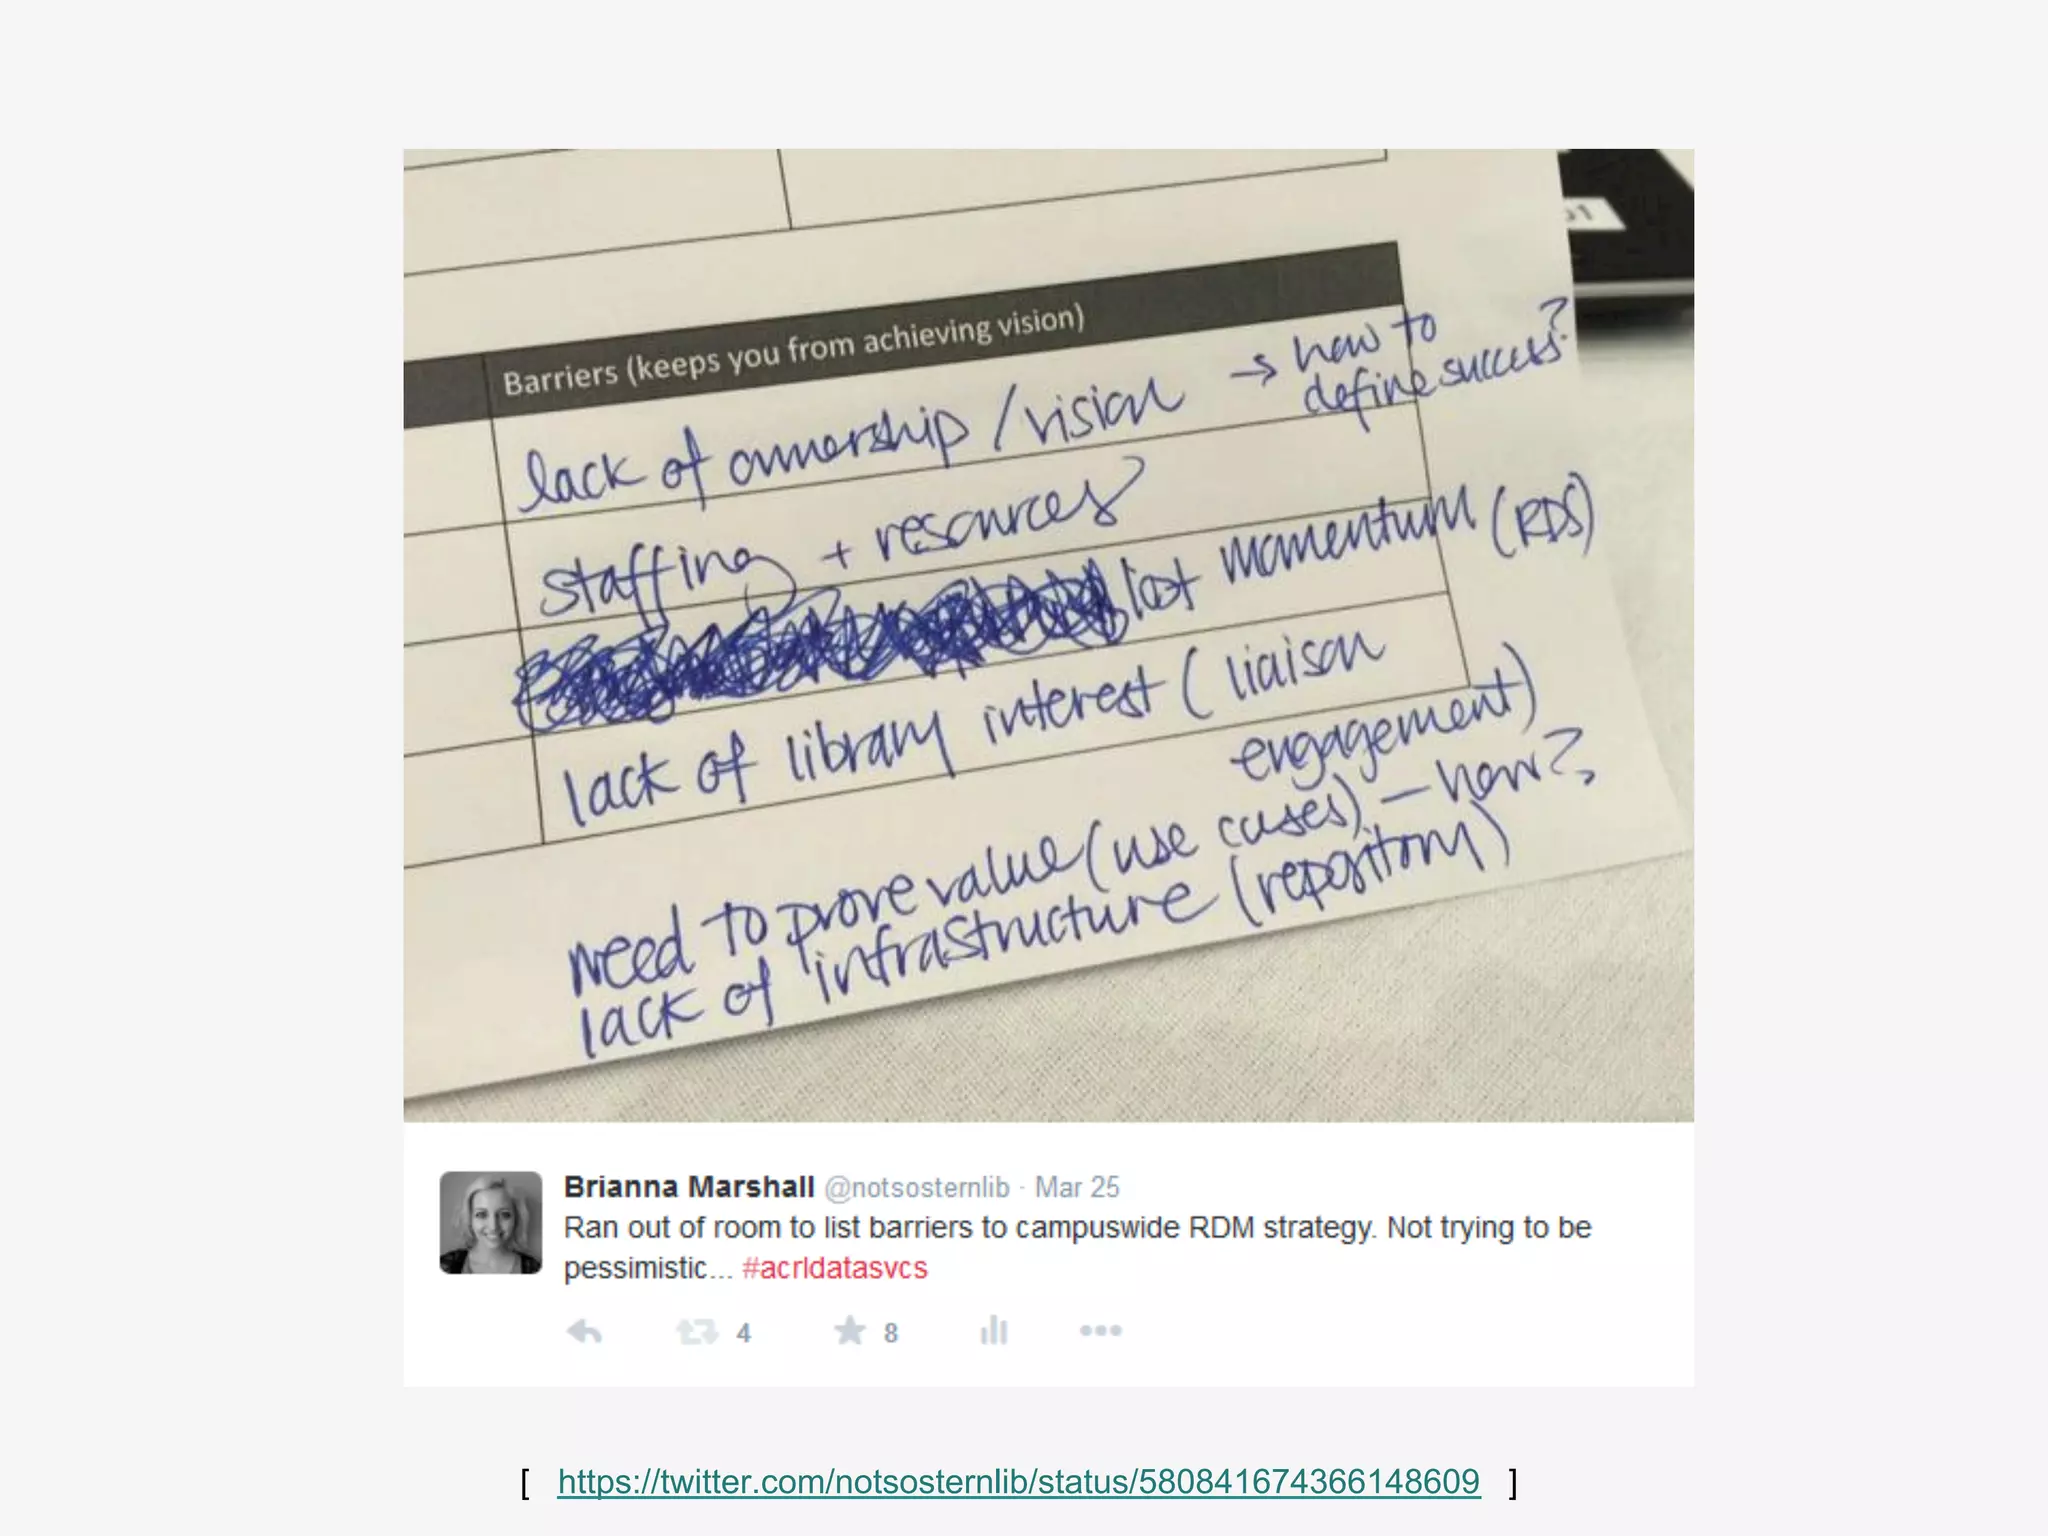 01
Barriers (keeps you from achieving vision)
lack of ownership / vision → how to
define success?
staffing + resources
lost momentum (RDS)
lack of library interest (liaison
engagement)
need to prove value (use cases) — how?
lack of infrastructure (repository)
Brianna Marshall @notsosternlib · Mar 25
Ran out of room to list barriers to campuswide RDM strategy. Not trying to be
pessimistic... #acrldatasvcs
4 8
[ https://twitter.com/notsosternlib/status/580841674366148609 ]